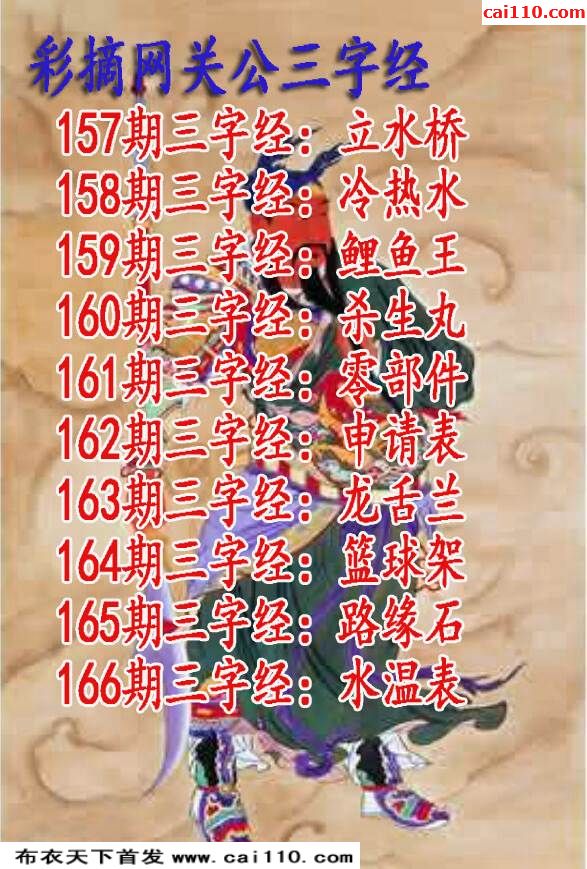 cai110.com
彩摘网关公三字经
157期三字经：立水桥
158期三字经：冷热水
159期三字经：鲤鱼王
160期三字经：杀生丸
161期三字经：零部件
162期三字经：申请表
163期三字经：龙舌兰
164期三字经：篮球架
165期三字经：路缘石
166期三字经：水温表
布衣天下首发 www.cai110.com